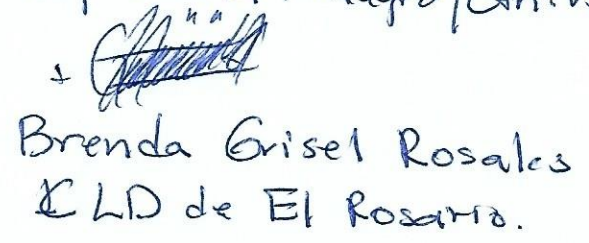 Brenda Grisel Rosales
CLD de El Rosario.